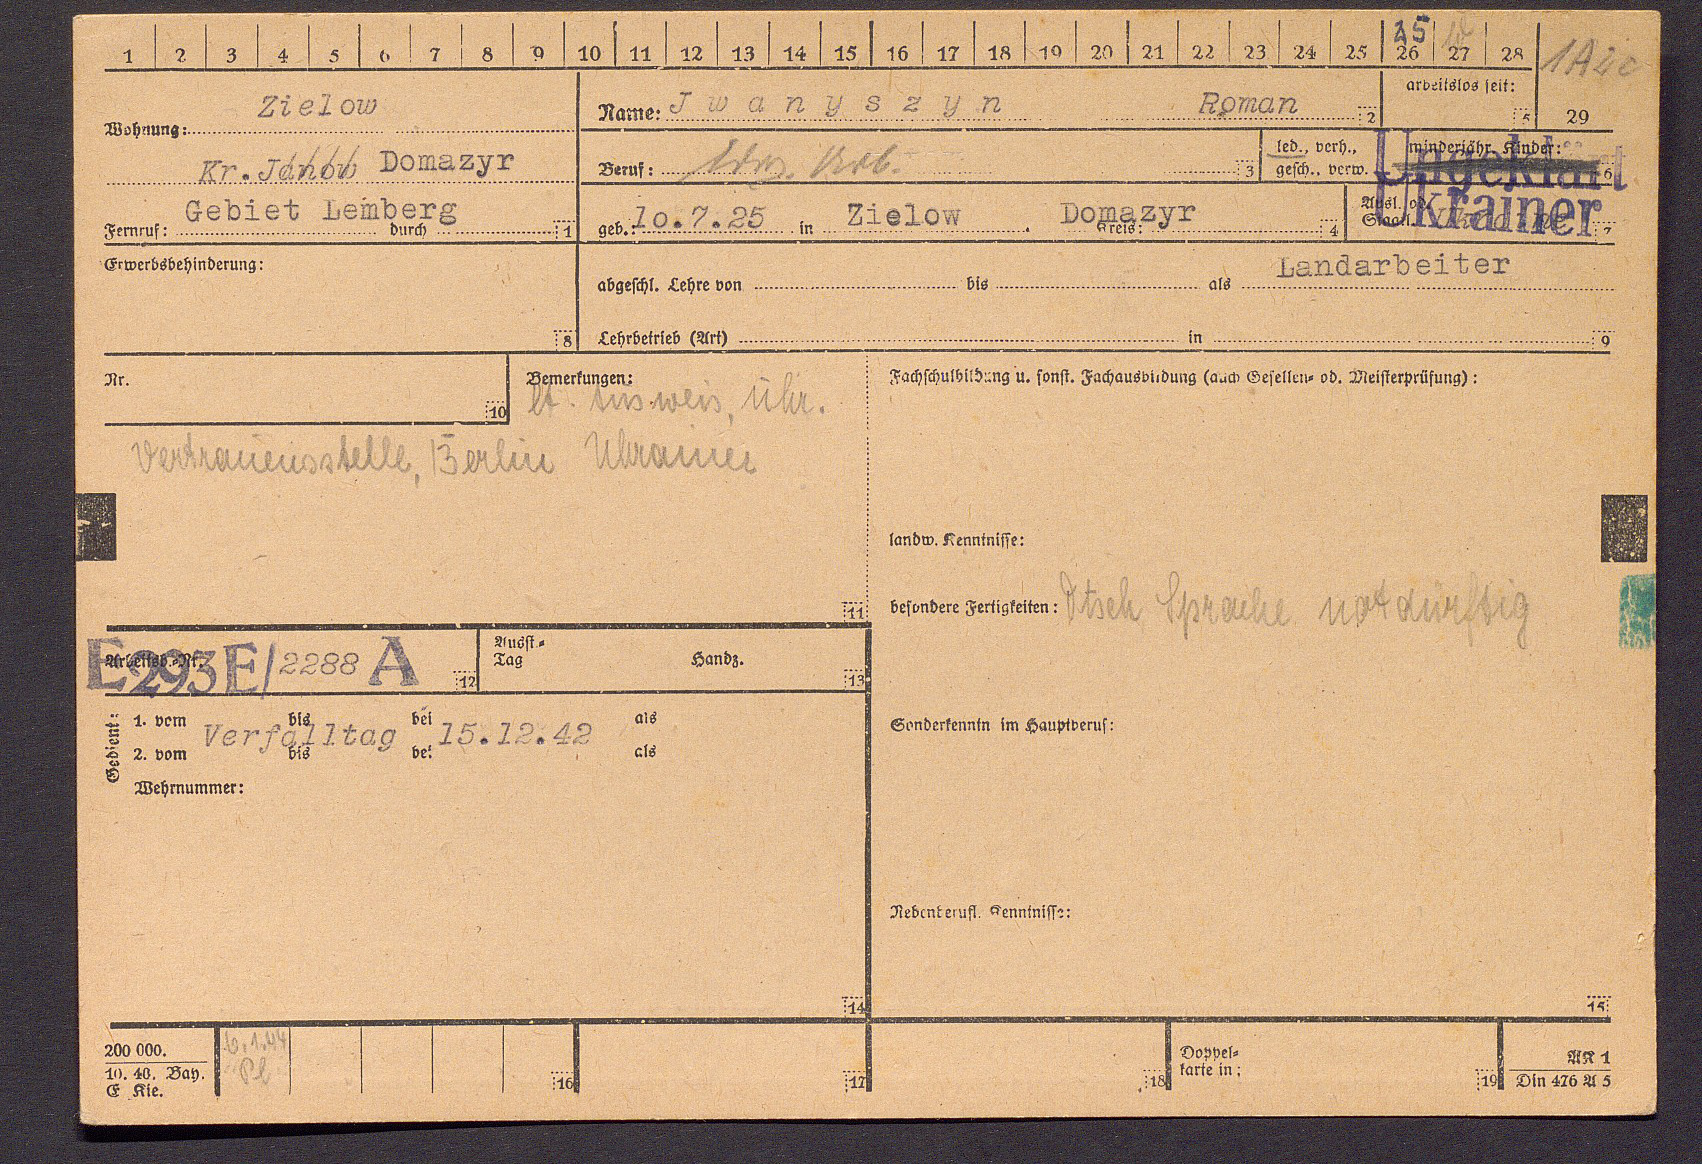 1 2 3 4 5 6 7 8 9 10 11 12 13 14 15 16 17 18 19 20 21 22 23 24 25 26 27 28
25
29
arbeitslos seit: 5
Wohnung: Zielow
Kr. Janow Domazyr
Gebiet Lemberg
Fernruf: durch 1
Name: Jwanyszyn Roman 2
Beruf: 3
led., verh.,
gesch., verw.
minderjähr. Kinder: 6
Ungeklärt
Ukrainer
geb.: 10.7.25 in Zielow Domazyr
Kreis: 4
Ausl. od.
Staatl. 7
Erwerbsbehinderung:
8
abgeschl. Lehre von bis als Landarbeiter
Lehrbetrieb (Art) in 9
Nr.
10
Bemerkungen:
lt. Ausweis, Ukr.
Vertrauensstelle, Berlin Ukrainer
11
Fachschulbildung u. sonst. Fachausbildung (auch Gesellen- od. Meisterprüfung):
landw. Kenntnisse:
besondere Fertigkeiten: Dtsch Sprache notdürftig
Arbeitsb.-Nr.
E293E/2288 A 12
Ausst.-
Tag Handz. 13
Gedient:
1. vom bis bei als
Verfalltag 15.12.42
2. vom bis bei als
Wehrnummer:
14
Sonderkenntn im Hauptberuf:
Nebenberufl. Kenntnisse:
15
200 000.
10. 40. Bay.
E Kie.
6.1.44
16
17
18
Doppel-
karte in:
19
AK 1
Din 476 A 5